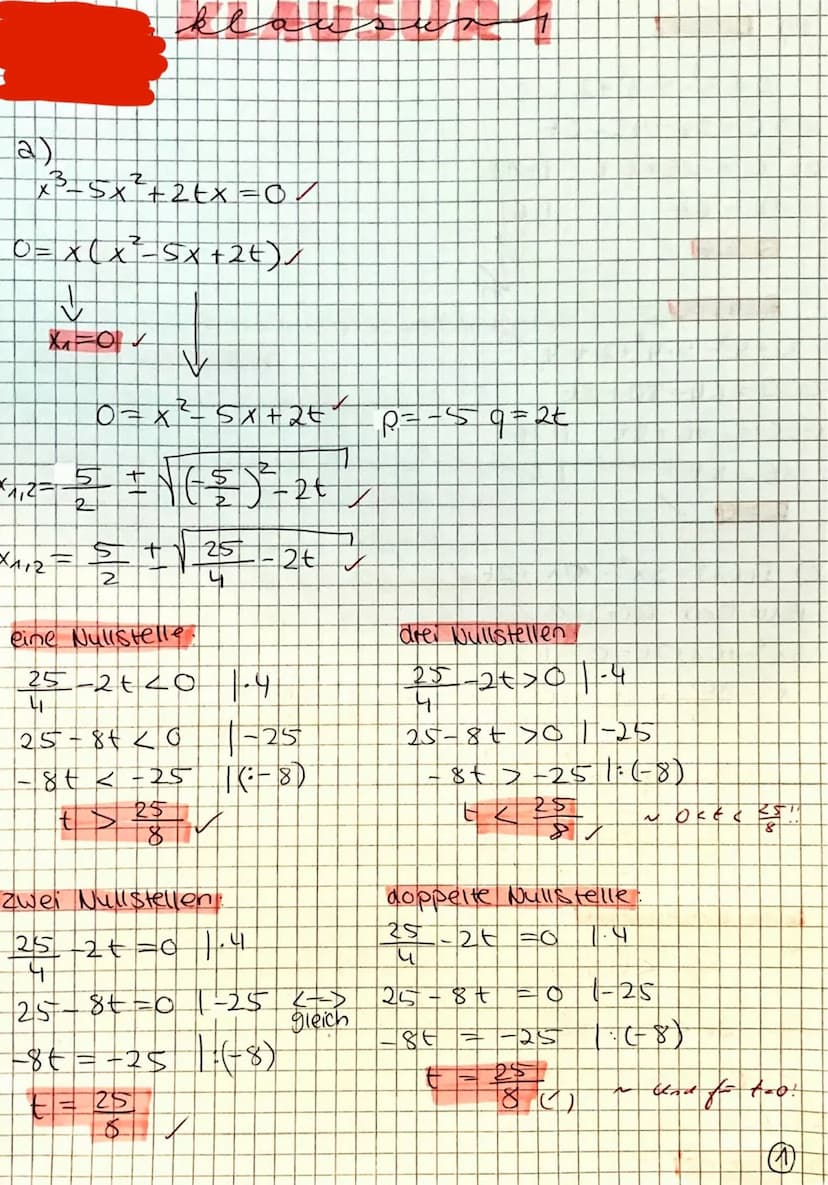 KLAUSUR 1
klausur 1
a)
x³-5x²+2tx=0 ✓
0=x(x²-5x+2t) ✓
↓ ↓
x₁=0 ✓
0=x²-5x+2t ✓ p=-5 q=2t
x₁,₂= 5/2 ± √((-5/2)²-2t) ✓
x₁,₂= 5/2 ± √(25/4-2t) ✓
eine Nullstelle:
25/4-2t<0 |·4
25-8t<0 |-25
-8t<-25 |(:-8)
t > 25/8 ✓
drei Nullstellen
25/4-2t>0 |·4
25-8t>0 |-25
-8t>-25 |:(-8)
t < 25/8 ✓ ~ 0<t<25/8!!
zwei Nullstellen:
25/4-2t=0 |·4
25-8t=0 |-25
-8t=-25 |:(-8)
t = 25/8 ✓
<-->
gleich
doppelte Nullstelle:
25/4-2t=0 |·4
25-8t=0 |-25
-8t=-25 |:(-8)
t = 25/8 (✓) ~ und für t=0!
1